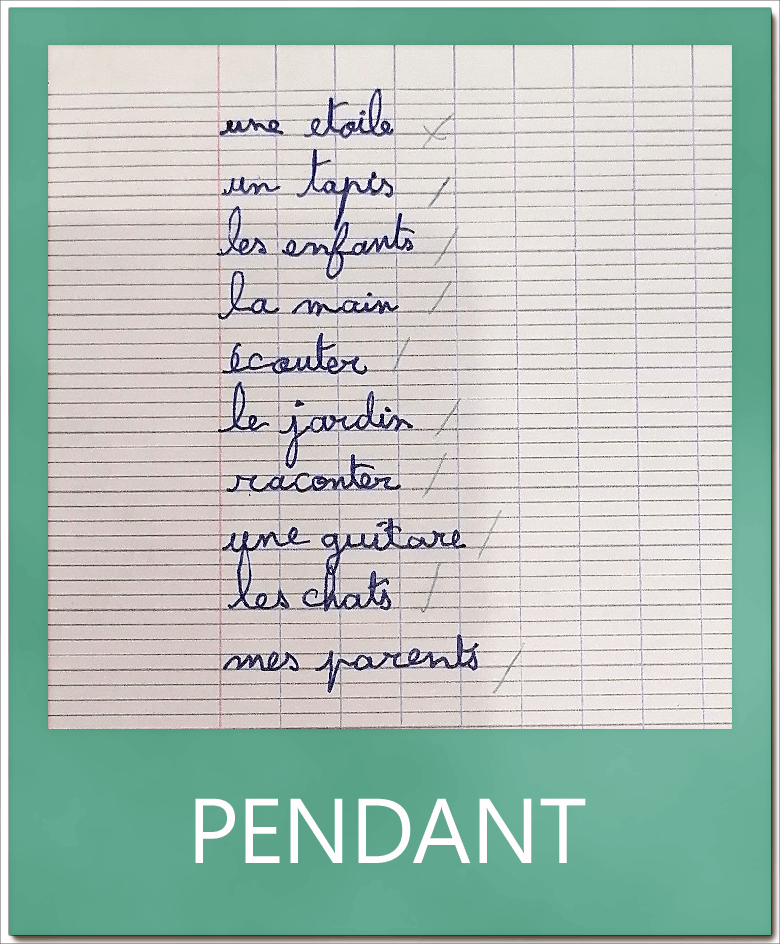 une etoile
un tapis
les enfants
la main
écouter
le jardin
raconter
une guitare
les chats
mes parents
PENDANT